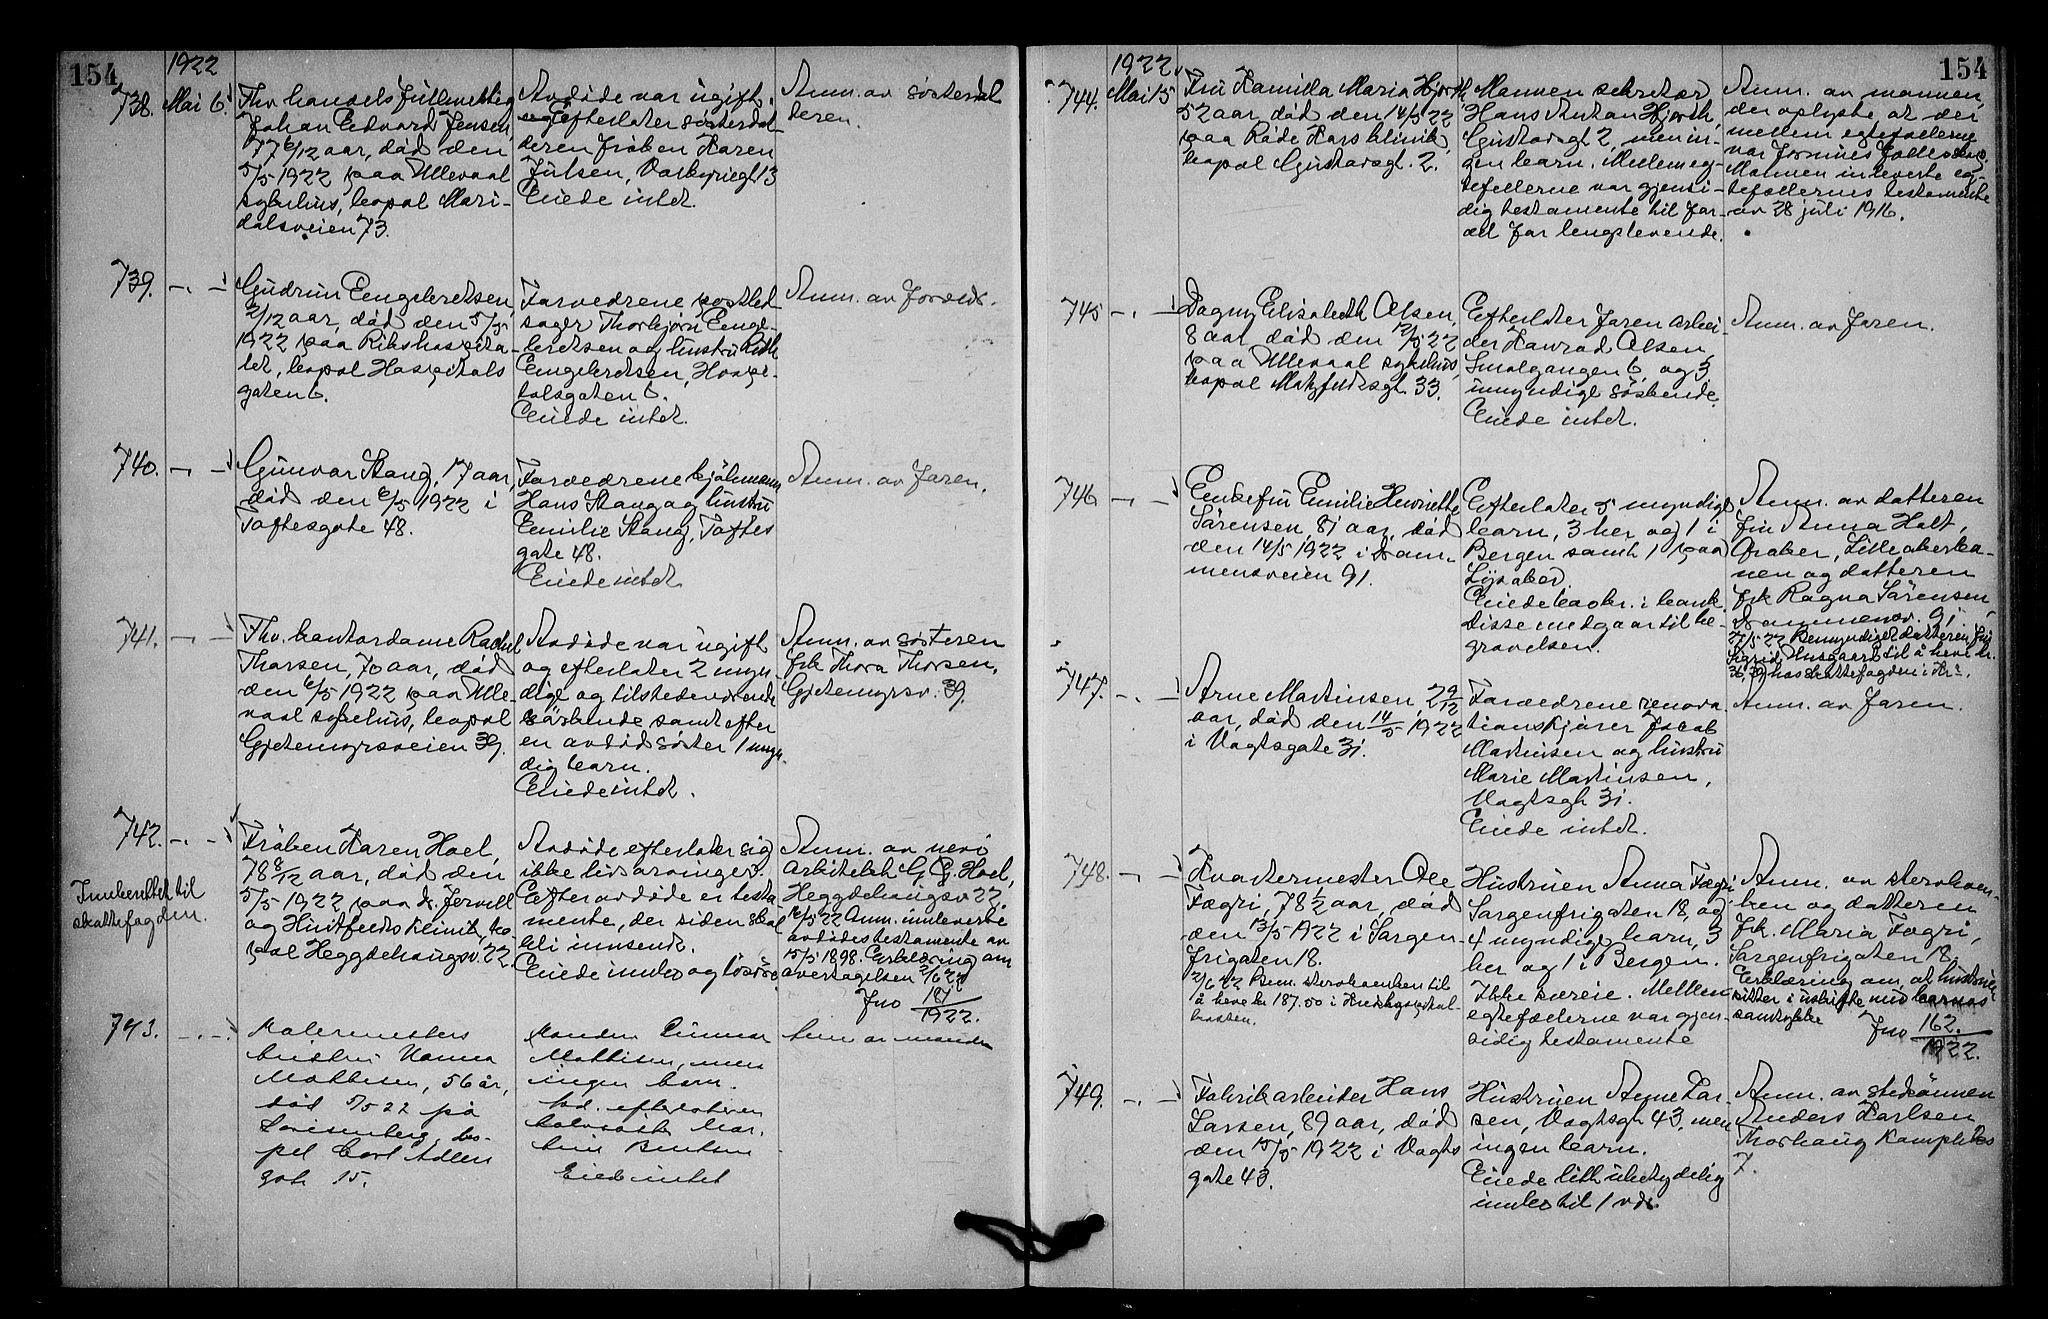 154
1922
738. Mai 6.
Thv. handelsfullmektig
Johan Edvard Jensen,
77 6/12 aar, død den
5/5 1922 paa Ullevaal
sykehus, bopæl Mari-
dalsveien 73.
Avdøde var ugift.
Efterlater søsterdat-
teren frøken Karen
Julsen, Valkyriegt 13
Eiede intet.
Anm. av søsterdat
teren.
739. -"- -"-
Gudrun Engebretsen,
2/12 aar, død den 5/5
1922 paa Rikshospita-
let, bopæl Hospitals
gaten 6.
Forældrene postled-
sager Thorbjørn Enge-
bretsen og hustru Ruth
Engebretsen, Hospi-
talsgaten 6.
Eiede intet.
Anm. av forældr.
740. -"- -"-
Gunvor Stang, 17 aar,
død den 6/5 1922 i
Toftesgate 48.
Forældrene kjølmann
Hans Stang og hustru
Emilie Stang, Toftes
gate 48.
Eiede intet
Anm. av faren.
741. -"- -"-
Thv. kontordame Rachel
Thorsen, 70 aar, død
den 6/5 1922 paa Ulle-
vaal sykehus, bopæl
Gjetemyrsveien 39.
Avdøde var ugift
og efterlater 2 myn-
dige og tilstedeværende
søskende samt efter
en avdød søster 1 myn-
dig barn.
Eiede intet.
Anm. av søsteren
frk Thora Thorsen,
Gjetemyrsv. 39.
742. -"- -"-
Innberettet til
skattefogden.
Frøken Karen Hoel,
78 8/12 aar, død den
5/5 1922 paa dr. Jervell
og Huitfeldts Klinik, bo
pæl Heggdehaugsv. 22.
Avdøde efterlater sig
ikke livsarvinger.
Efter avdøde er testa
mente, der siden skal
bli innsendt.
Eiede innbo og løsøre
Anm. av nevø
Arkitekt G. G. Hoel,
Heggdehaugsv 22.
16/5 22 Anm. innleverte
avdødes testamente av
15/5 1898. Erklæring om
overtagelsen 2/6 22
Jno 181/1922.
743. -"- -"-
Malermesters
hustru Hanna
Mathisen, 56 år,
død 5/5 22 på
Lovisenberg, bo-
pæl Cort Adlers
gate 15.
Manden Gunnar
Mathisen, men
ingen barn.
Eiede intet
Anm av manden
154
1922
744. Mai 15
Fru Kamilla Maria Hjorth,
52 aar, død den 14/5 22
paa Røde Kors klinik
bopæl Gustavsgt. 2.
Mannen sekretær
Hans Anton Hjorth,
Gustavsgt 2, men in-
gen barn. Mellem eg-
tefellerne var gjensi-
dig testamente til for-
del for lengstlevende.
Anm. av mannen,
der oplyste at der
mellem egtefællerne
var formues fællesskap.
Mannen innleverte eg-
tefællernes testamente
av 28 juli 1916.
745 -"- -"-
Dagny Elisabeth Olsen,
8 aar, død den 12/5 22
paa Ullevaal sykehus,
bopæl Motzfeldtsgt. 33.
Efterlater faren arbei-
der Konrad Olsen,
Smalgangen 6, og 3
umyndige søskende.
Eiede intet.
Anm. av faren.
746 -"- -"-
Enkefru Emilie Henriette
Sørensen, 81 aar, død
den 14/5 1922 i Dram-
mensveien 91.
Efterlater 5 myndige
barn, 3 her og 1 i
Bergen samt 1 paa
Lysaker.
Disse medgaar til be-
gravelsen.
Anm. av datteren
fru Anna Holt,
Øraker, Lilleakerba-
nen og datteren
frk Ragna Sørensen,
Drammensv. 91.
Bemyndiget datteren fru
Sigrid Husgaard til å heve kr.
36,39 hos skattefogden i Kr.a.
747. -"- -"-
Arne Martinsen, 2 9/12
aar, død den 14/5 1922
i Vogtsgate 31.
Forældrene renova
tionskjører Jacob
Martinsen og hustru
Marie Martinsen,
Vogtsgt 31.
Eiede intet.
Anm. av faren.
748. -"- -"-
Kvartermester Ole
Fægri, 78 1/2 aar, død
den 13/5 1922 i Sorgen-
frigaten 18.
2/6 22 Bem. stervboenken til
å heve kr 187.50 i
kassen.
Hustruen Anna Fægri
Sorgenfrigaten 18, og
4 myndige barn, 3
her og 1 i Bergen.
Ikke særeie. Mellem
egtefællerne var gjen-
sidig testamente
Anm. av stervboen-
ken og datteren
frk. Maria Fægri,
Sorgenfrigaten 18.
Erklæring om at hustruen
sitter i uskifte med barnas
samtykke
Jno 162./1922.
749. -"- -"-
Fabrikarbeider Hans
Larsen, 89 aar, død
den 15/5 1922 i Vogts
gate 43.
Hustruen Anne Lar-
sen, Vogtsgt 43, men
ingen barn.
Eiede litt ubetydelig
innbo til 1 vær.
Anm. av stedsønnen
Anders Karlsen
Thorhaug
7.